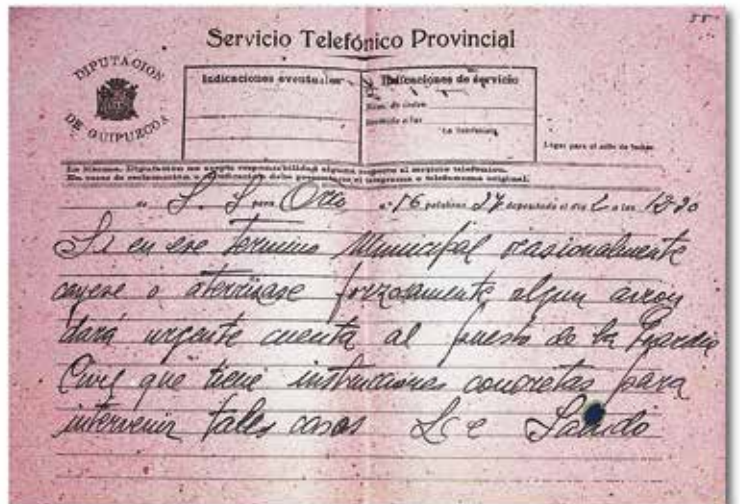 55
Servicio Telefónico Provincial
DIPUTACION
DE GUIPUZCOA
Indicaciones eventuales
Indicaciones de servicio
Núm. de orden
Recibido a las
La telefonista,
Lugar para el sello de fechas
La Excma. Diputación no acepta responsabilidad alguna respecto al servicio telefónico.
En casos de reclamación o rectificación debe presentarse el telegrama o telefonema original.
de S. S. para Orio n.º 16 palabras 27 depositado el día 2 a las 12-20
Si en ese termino Municipal ocasionalmente
cayese o aterrisase forzosamente algun avion
dará urgente cuenta al puesto de la Guardia
Civil que tiene instrucciones concretas para
intervenir tales casos Le Saludo